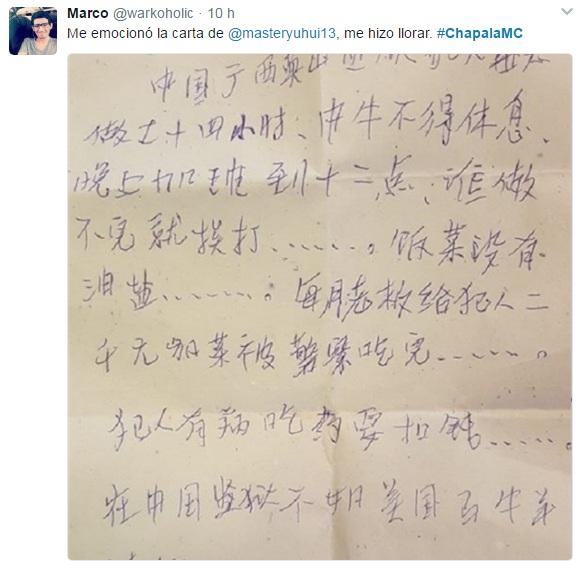 Marco @warkoholic · 10 h
Me emocionó la carta de @masteryuhui13, me hizo llorar. #ChapalaMC
中国广西英山
做工十四小时、中午不得休息、
晚上加班到十二点、谁做
不完就挨打……。饭菜没有
油盐……。每月老板给犯人二
千元加菜被警察吃完……。
犯人有病吃药要扣钱……。
在中国监狱不如美国马牛羊